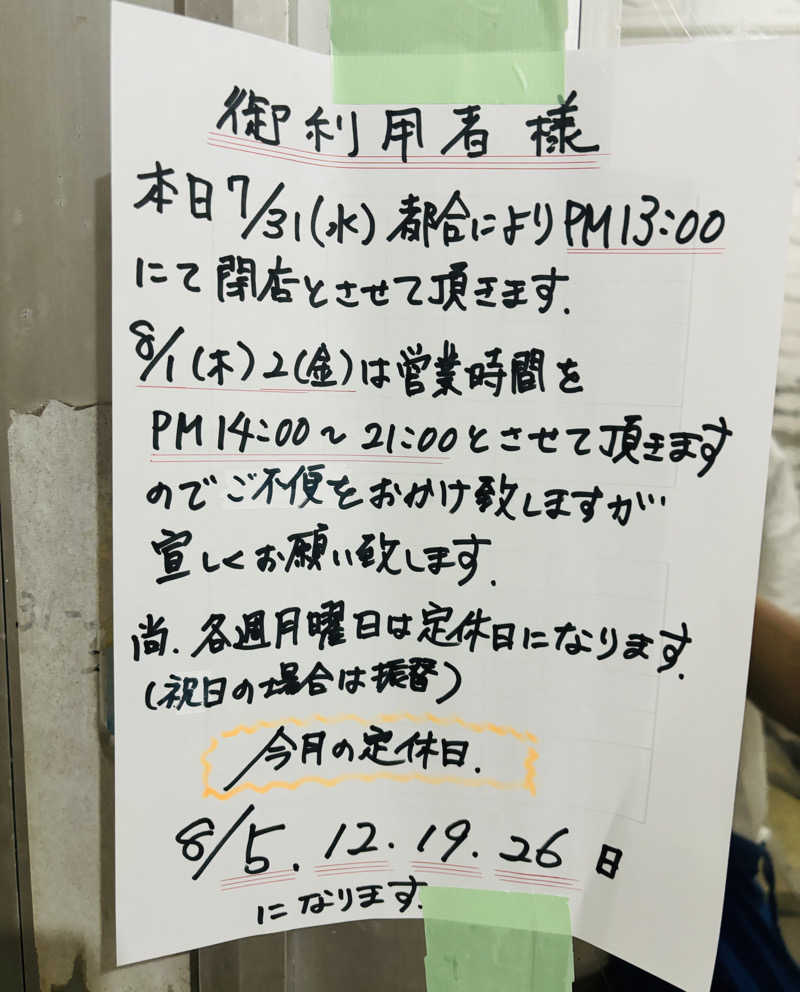 御利用者様
本日7/31(水)都合によりPM13:00
にて閉店とさせて頂きます.
8/1(木)2(金)は営業時間を
PM14:00~21:00とさせて頂きます
のでご不便をおかけ致しますが
宜しくお願い致します.
尚.各週月曜日は定休日になります.
(祝日の場合は振替)
今月の定休日.
8/5.12.19.26日
になります.